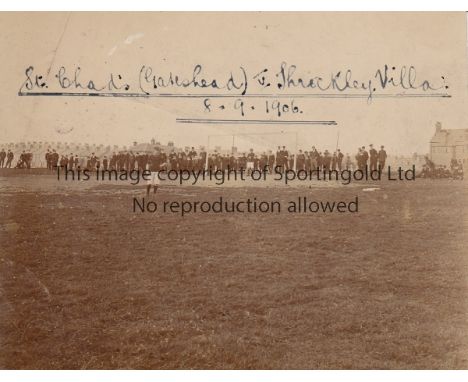 St. Chad's (Gateshead) v. Shieckley Villa:
8-9-1906.
This image is copyright of Sportingold Limited
No reproduction allowed